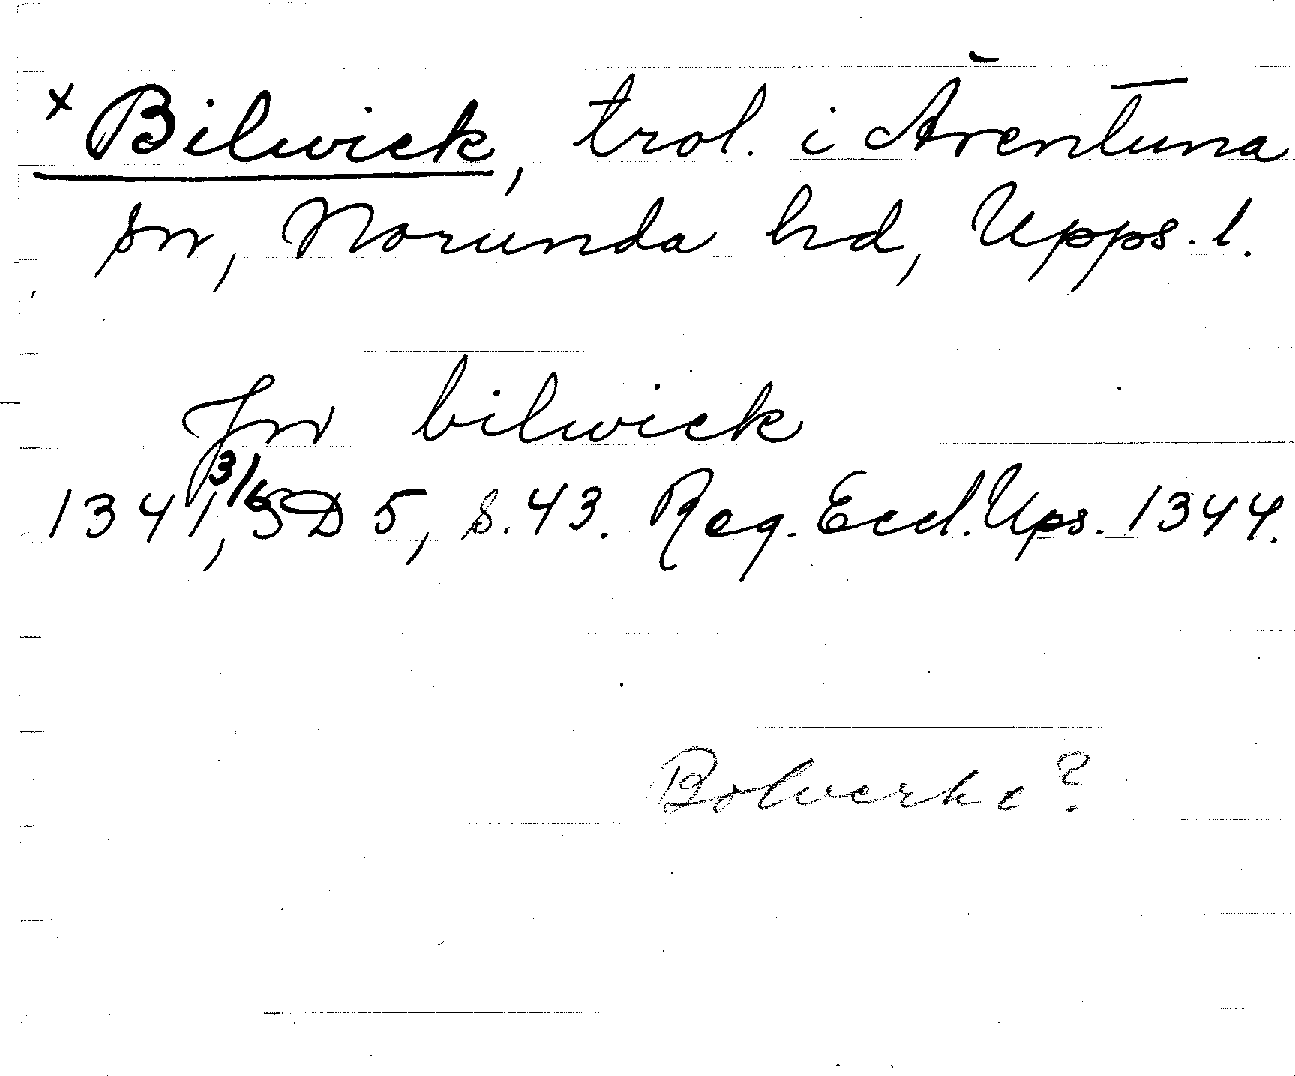 x Bilwick, trol. i Ärentuna
sn, Norunda hd, Upps. l.
Jn bilwick
1341 3/6, SD 5, s. 43. Reg. Eccl. Ups. 1344.
Bolverke?